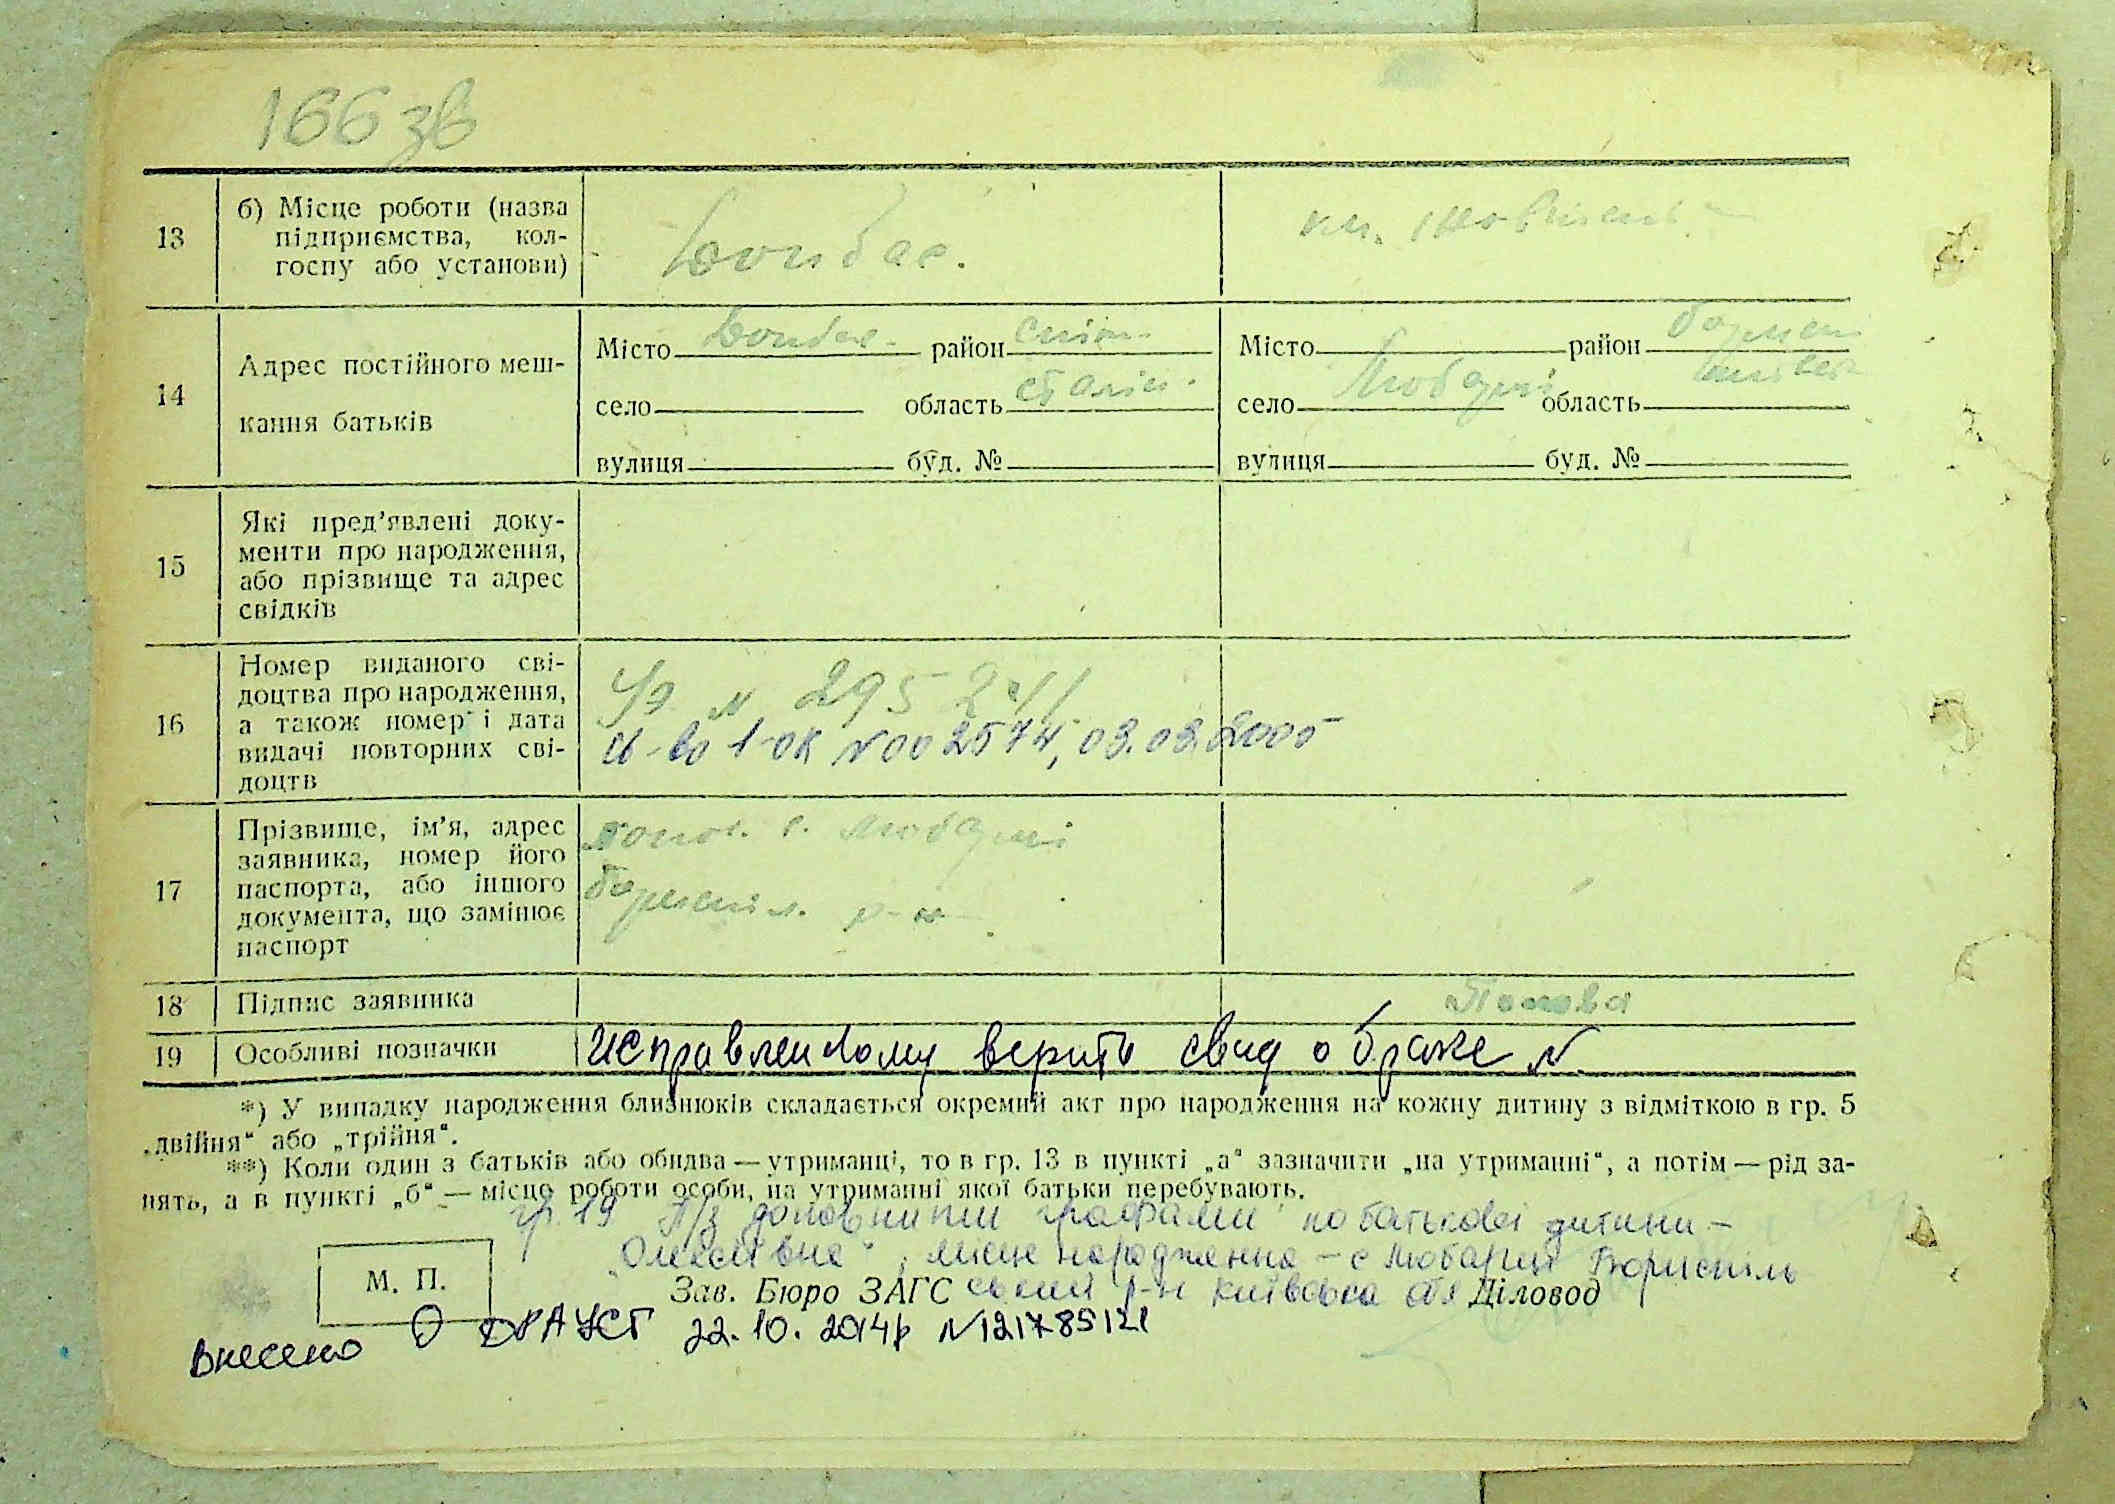 166 зв
13
б) Місце роботи (назва
підприємства, кол-
госпу або установи)
Донбас.
14
Адрес постійного меш-
кання батьків
Місто Донбас район
село область сталін.
вулиця буд. №
Місто район
село Любарці область
вулиця буд. №
15
Які пред'явлені доку-
менти про народження,
або прізвище та адрес
свідків
16
Номер виданого сві-
доцтва про народження,
а також номер і дата
видачі повторних сві-
доцтв
№ 295 241
1-ОК №002574, 03.03.2000
17
Прізвище, ім'я, адрес
заявника, номер його
паспорта, або іншого
документа, що замінює
паспорт
с. Любарці
р-н
18
Підпис заявника
Попова
19
Особливі позначки
Исправленному верить свид о браке №
*) У випадку народження близнюків складається окремий акт про народження на кожну дитину з відміткою в гр. 5
„двійня“ або „трійня“.
**) Коли один з батьків або обидва — утриманці, то в гр. 13 в пункті „а“ зазначити „на утриманні“, а потім — рід за-
нять, а в пункті „б“ — місце роботи особи, на утриманні якої батьки перебувають.
гр. 19 А/з доповнити графами по батькові дитини –
„Олексіївна“, місце народження – с Любарці Бориспіль
ський р-н Київська обл
М. П.
Зав. Бюро ЗАГС
Діловод
Внесено О ДРАЦСГ 22.10.2014р №121785121